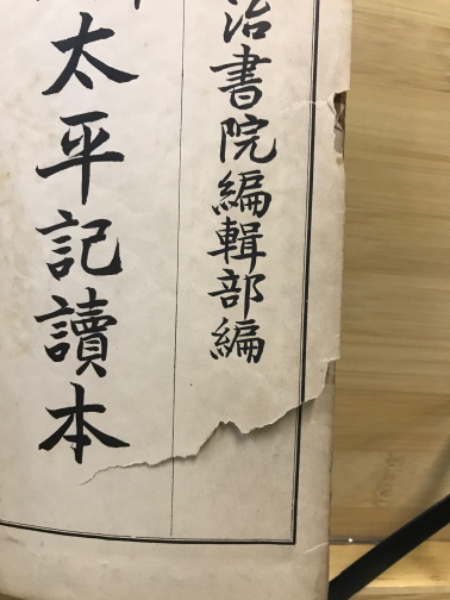 治書院編輯部編
太平記讀本